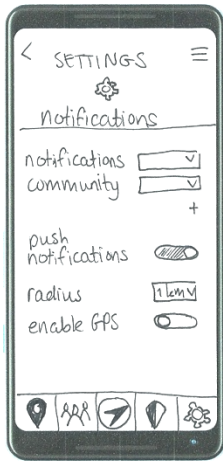 SETTINGS
notifications
notifications
community
+
push
notifications
radius 1 km
enable GPS